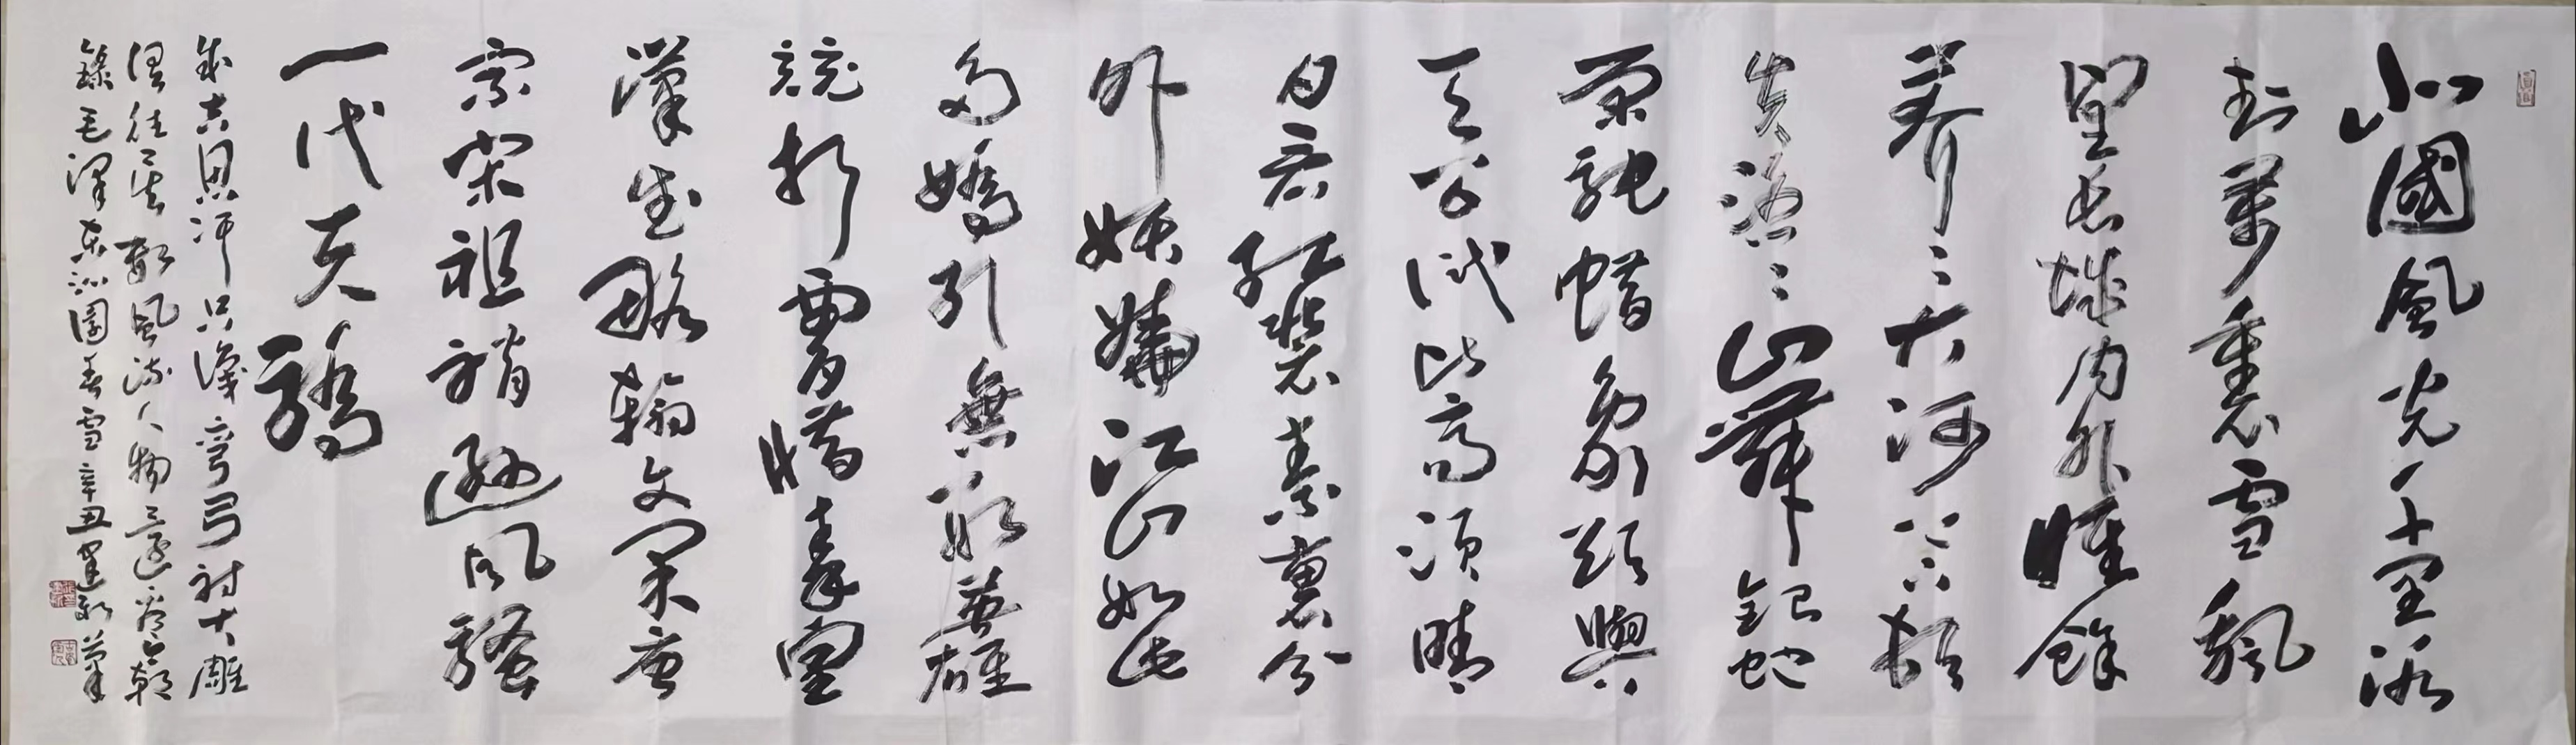 北國風光千里冰
封萬裏雪飄
望長城内外惟餘
莽々大河上下頓
失滔々山舞銀蛇
原馳蜡象欲與
天公試比高須晴
日看紅裝素裹分
外妖嬈江山如此
多嬌引無數英雄
競折腰惜秦皇
漢武略輸文采唐
宗宋祖稍遜風騷
一代天驕
成吉思汗只識彎弓射大雕
俱往矣數風流人物還看今朝
錄毛澤東沁園春雪辛丑建新筆